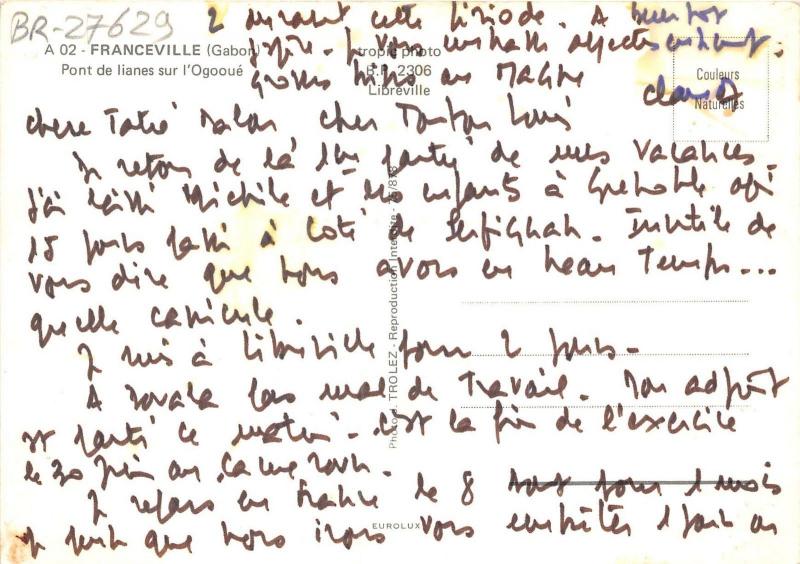 BR-27629
A 02 - FRANCEVILLE (Gabon)
Pont de lianes sur l'Ogooué
tropic photo
B.P. 2306
Libreville
Couleurs
Naturelles
chère Tatie cher Tonton Louis
Je retour de la 1ère partie de mes vacances.
J'ai laissé Michèle et les enfants à Grenoble après
15 jours passés à coté de Perpignan. Inutile de
vous dire que nous avons eu beau Temps...
quelle canicule.
Je suis à Libreville pour 2 jours.
A pas mal de Travail. Mon adjoint
est parti ce matin. c'est la fin de l'exercice
le 30 juin au Cameroun.
Je repars en France le 8 août pour 1 mois
je pense que nous irons vous embêter 1 jour ou
2 durant cette période. A bientôt
j'espère. Je vous embrasse affectueusement.
Grosses bises au
Claude
Photo J. TROLEZ - Reproduction Interdite
EUROLUX